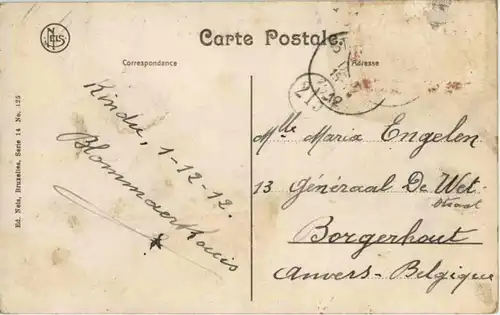 NELS
Carte Postale.
Correspondance
Adresse
Ed. Nels, Bruxelles, Serie 14 No. 125
Kindu, 1-12-12.
Blommaert Louis
215
Mlle Maria Engelen
13 Généraal De Wet
straat
Borgerhout
Anvers-Belgique